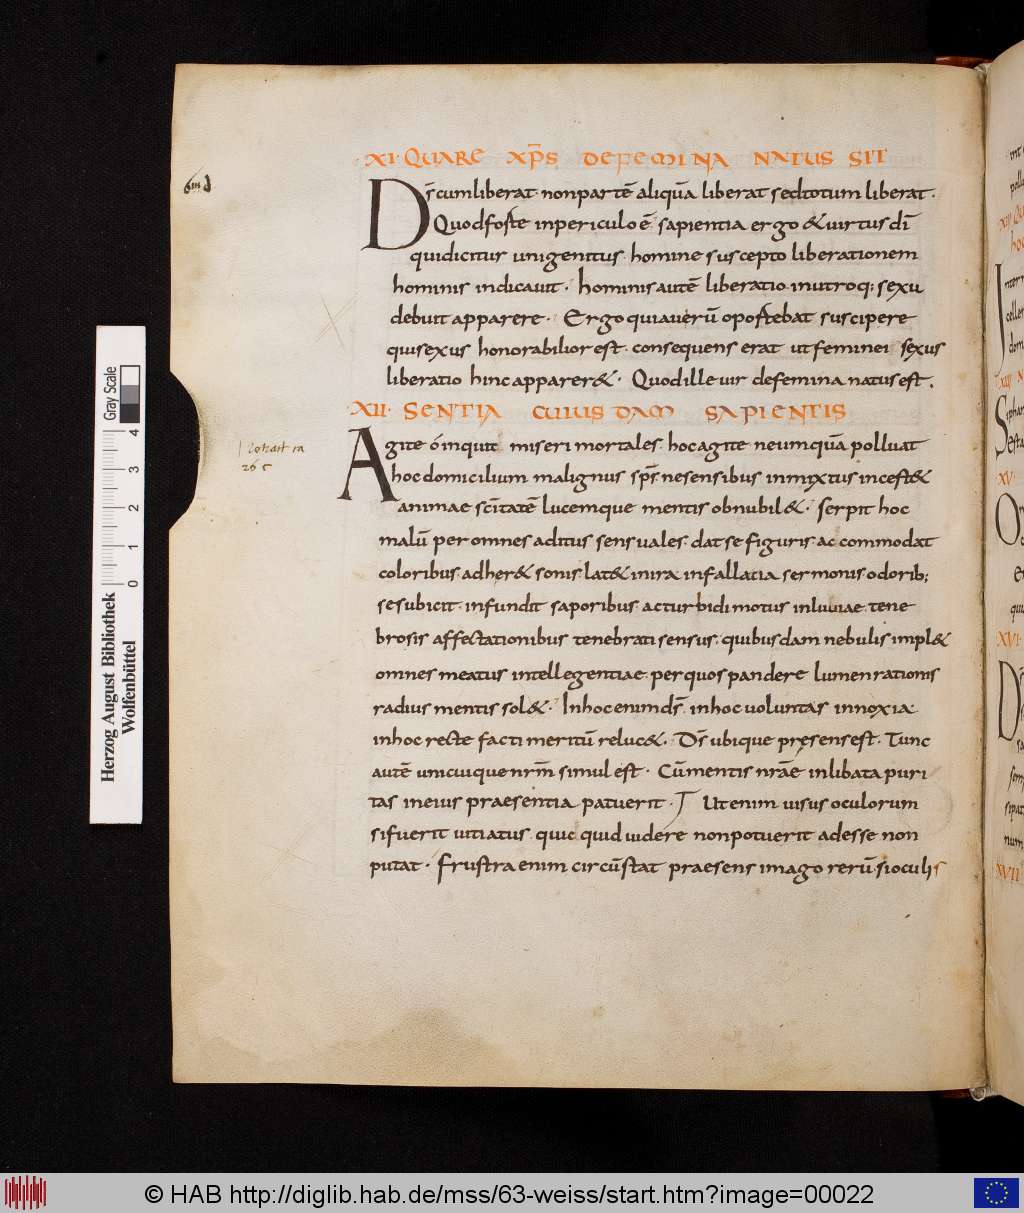 XI· QUARE XP̄S DEFEMINA NATUS SIT
D̄s cum liberat· non partē aliquā liberat sed totum liberat·
Quod foſte in periculo ē· sapientia ergo & uirtus dī
qui dicitur unigenitus homine suscepto liberationem
hominis indicauit· hominis autē liberatio in utroq; sexu
debuit apparere· Ergo quia uerū opoſtebat suscipere
qui sexus honorabilior est· consequens erat ut feminei sexus
liberatio hinc apparer&· Quod ille uir de femina natus est.
·XII· SENTIA CUIUSDAM SAPIENTIS
Agite ó inquit miseri mortales· hoc agite ne umquā polluat
hoc domicilium malignus sp̄s· ne sensibus inmixtus incest&
animae sc̄itatē lucemque mentis obnubil&· serpit hoc
malū per omnes aditus sensuales· dat se figuris· accommodat
coloribus· adher& sonis· lat& in ira in fallatia sermonis· odorib;
se subicit· infundit saporibus· ac turbidi motus inluuiae tene
brosis affectationibus tenebrati sensus· quibusdam nebulis impl&
omnes meatus intellegentiae· per quos pandere lumen rationis
radius mentis sol&· In hoc enim d̄s· in hoc uoluntas innoxia·
in hoc recte facti meritū reluc&· D̄s ubique presens est· Tunc
autē unicuique nrm̄ simul est· Cū mentis nrāe inlibata puri
tas in eius praesentia patuerit· Ut enim uisus oculorum
si fuerit uitiatus quic quid uidere non potuerit adesse non
putat· Frustra enim circūstat praesens imago rerū si oculis
26 c
Gray Scale
4
3
2
1
0
Herzog August Bibliothek
Wolfenbüttel
© HAB http://diglib.hab.de/mss/63-weiss/start.htm?image=00022